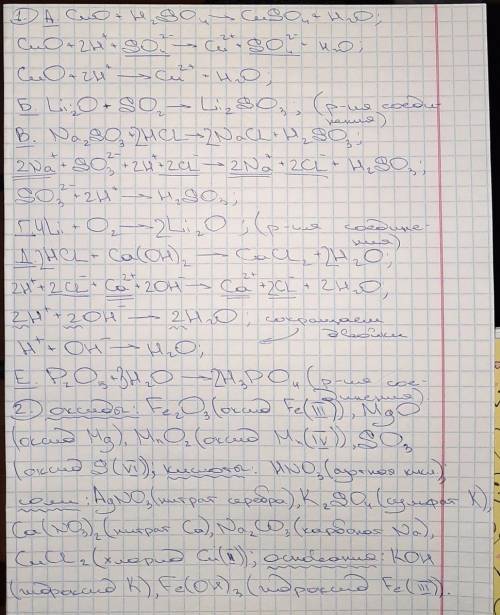 1) А. CuO + H₂SO₄ → CuSO₄ + H₂O;
CuO + 2H⁺ + SO₄²⁻ → Cu²⁺ + SO₄²⁻ + H₂O;
CuO + 2H⁺ → Cu²⁺ + H₂O;
Б. Li₂O + SO₂ → Li₂SO₃; (р-ия соеди-
нения)
В. Na₂SO₃ + 2HCl → 2NaCl + H₂SO₃;
2Na⁺ + SO₃²⁻ + 2H⁺ + 2Cl⁻ → 2Na⁺ + 2Cl⁻ + H₂SO₃;
SO₃²⁻ + 2H⁺ → H₂SO₃;
Г. 4Li + O₂ → 2Li₂O; (р-ия соедине-
ния)
Д. 2HCl + Ca(OH)₂ → CaCl₂ + 2H₂O;
2H⁺ + 2Cl⁻ + Ca²⁺ + 2OH⁻ → Ca²⁺ + 2Cl⁻ + 2H₂O;
2H⁺ + 2OH⁻ → 2H₂O; сокращаем
двойки
H⁺ + OH⁻ → H₂O;
Е. P₂O₅ + 3H₂O → 2H₃PO₄ (р-ия сое-
динения)
2) оксиды: Fe₂O₃ (оксид Fe(III)), MgO
(оксид Mg), MnO₂ (оксид Mn(IV)), SO₃
(оксид S(VI)); кислоты: HNO₃ (азотная кисл);
соли: AgNO₃ (нитрат серебра), K₂SO₄ (сульфат K),
Ca(NO₃)₂ (нитрат Ca), Na₂CO₃ (карбонат Na),
CuCl₂ (хлорид Cu(II)); основания: KOH
(гидроксид K), Fe(OH)₃ (гидроксид Fe(III)).